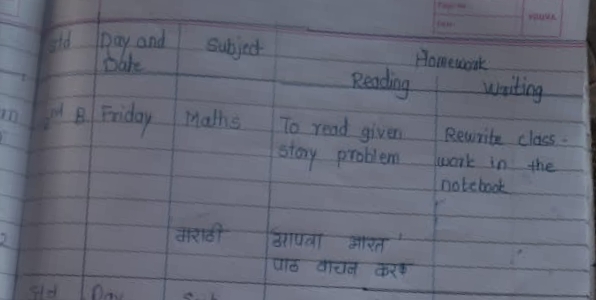 Std Day and Date Subject Homework
Reading Writing
2nd B Friday Maths To read given Rewrite class-
story problem work in the
notebook
मराठी आपला भारत
पाठ वाचन करणे
Std Day Sub